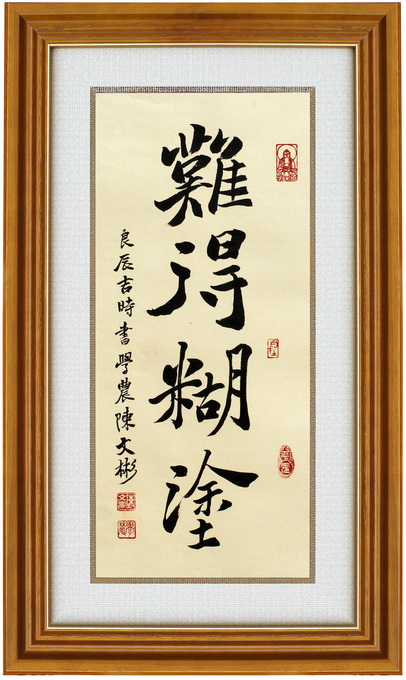 難得糊塗
良辰吉時書學農陳文彬